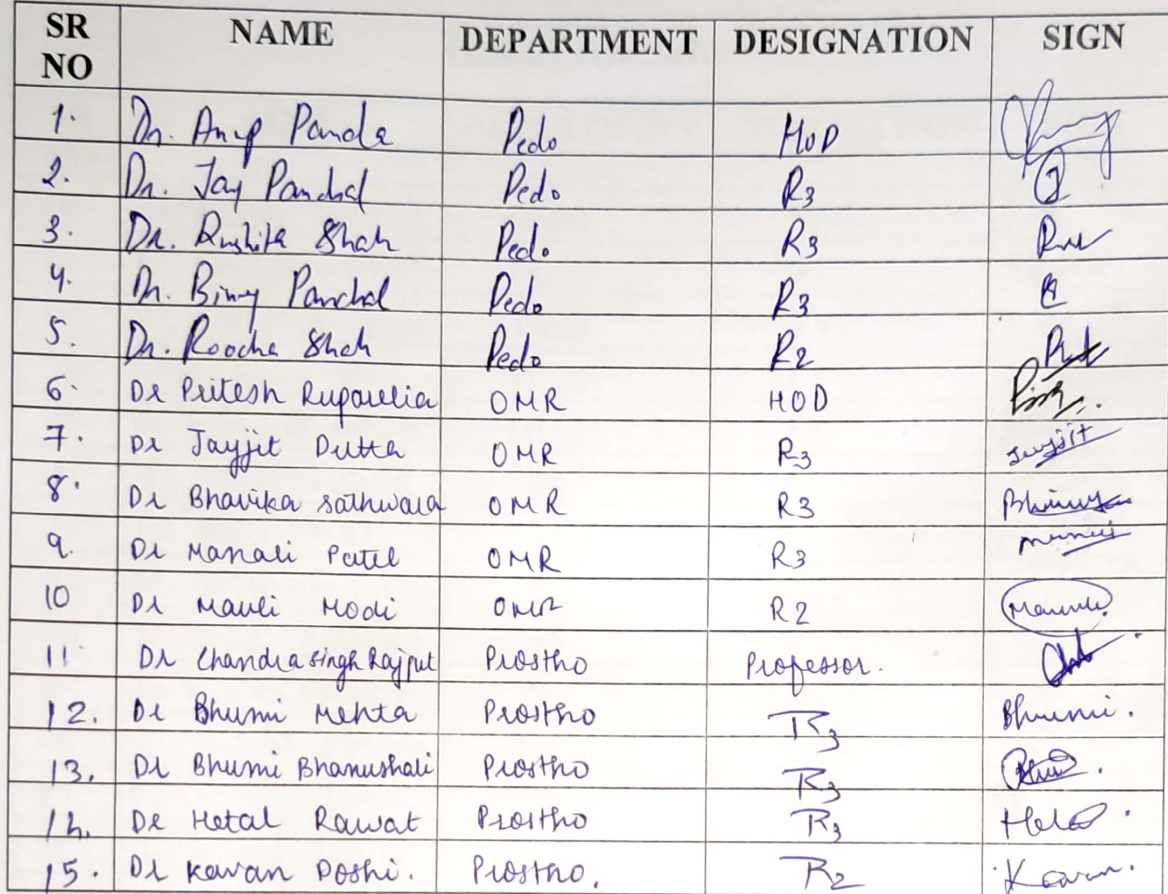 SR NO NAME DEPARTMENT DESIGNATION SIGN
1. Dr. Anup Panda Pedo HOD
2. Dr. Jay Panchal Pedo R3
3. Dr. Rushita Shah Pedo R3
4. Dr. Binny Panchal Pedo R3
5. Dr. Roocha Shah Pedo R2
6. Dr Pritesh Ruparelia OMR HOD
7. Dr Jayjit Dutta OMR R3 Jayjit
8. Dr Bhavika Sathwara OMR R3
9. Dr Manali Patel OMR R3
10 Dr Mauli Modi OMR R2
11 Dr Chandrasingh Rajput Prostho Professor.
12. Dr Bhumi Mehta Prostho R3 Bhumi.
13. Dr Bhumi Bhanushali Prostho R3
14. Dr Hetal Rawat Prostho R3
15. Dr Kavan Doshi. Prostho. R2 Kavan.